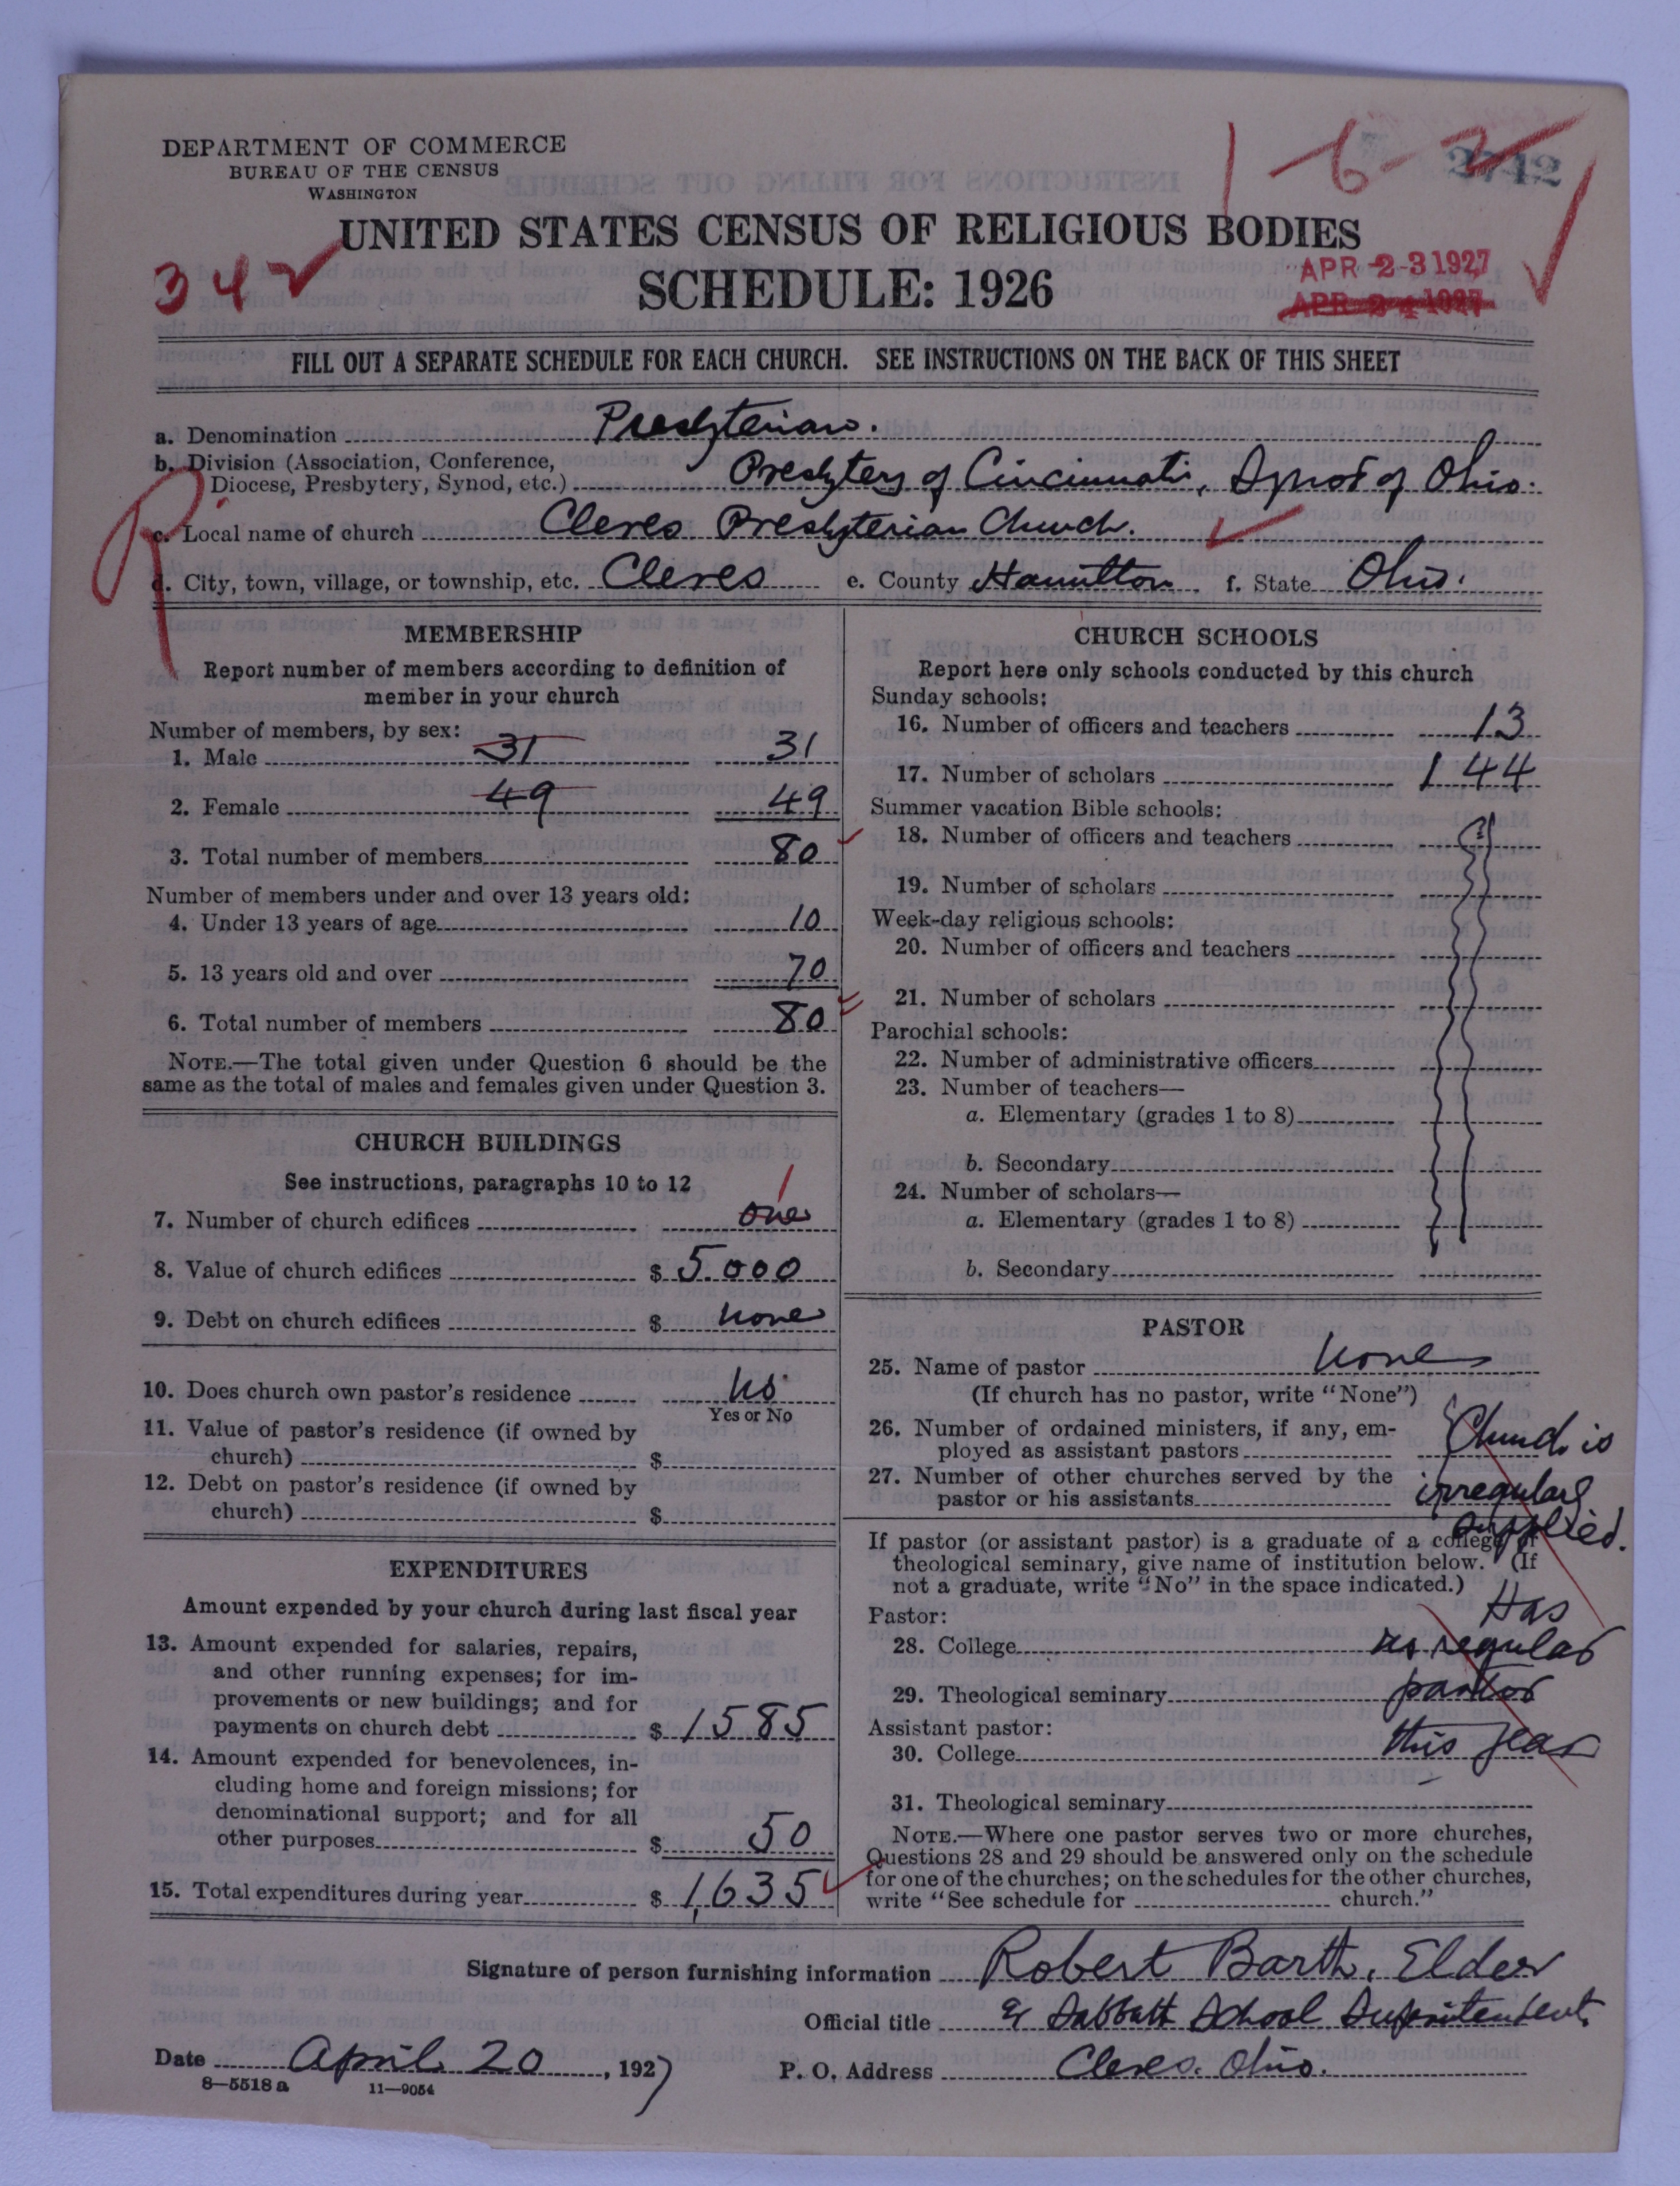 DEPARTMENT OF COMMERCE
BUREAU OF THE CENSUS
WASHINGTON
1-6-2
2742
UNITED STATES CENSUS OF RELIGIOUS BODIES
342
SCHEDULE: 1926
APR 2-3 1927
APR 24 1927
FILL OUT A SEPARATE SCHEDULE FOR EACH CHURCH. SEE INSTRUCTIONS ON THE BACK OF THIS SHEET
a. Denomination Presbyterian.
b. Division (Association, Conference,
Diocese, Presbytery, Synod, etc.) Presbytery of Cincinnati, Synod of Ohio.
c. Local name of church Cleves Presbyterian Church.
d. City, town, village, or township, etc. Cleves e. County Hamilton f. State Ohio.
MEMBERSHIP
Report number of members according to definition of
member in your church
Number of members, by sex:
1. Male 31 31
2. Female 49 49
3. Total number of members 80
Number of members under and over 13 years old:
4. Under 13 years of age 10
5. 13 years old and over 70
6. Total number of members 80
NOTE.—The total given under Question 6 should be the
same as the total of males and females given under Question 3.
CHURCH BUILDINGS
See instructions, paragraphs 10 to 12
1
7. Number of church edifices one
8. Value of church edifices $ 5.000
9. Debt on church edifices $ none
10. Does church own pastor's residence no
Yes or No
11. Value of pastor's residence (if owned by
church) $
12. Debt on pastor's residence (if owned by
church) $
EXPENDITURES
Amount expended by your church during last fiscal year
13. Amount expended for salaries, repairs,
and other running expenses; for im-
provements or new buildings; and for
payments on church debt $ 1585
14. Amount expended for benevolences, in-
cluding home and foreign missions; for
denominational support; and for all
other purposes $ 50
15. Total expenditures during year $ 1,635
CHURCH SCHOOLS
Report here only schools conducted by this church
Sunday schools:
16. Number of officers and teachers 13
17. Number of scholars 144
Summer vacation Bible schools:
18. Number of officers and teachers
19. Number of scholars
Week-day religious schools:
20. Number of officers and teachers
21. Number of scholars
Parochial schools:
22. Number of administrative officers
23. Number of teachers—
a. Elementary (grades 1 to 8)
b. Secondary
24. Number of scholars—
a. Elementary (grades 1 to 8)
b. Secondary
PASTOR
25. Name of pastor None
(If church has no pastor, write "None")
26. Number of ordained ministers, if any, em-
ployed as assistant pastors Church is
27. Number of other churches served by the
pastor or his assistants irregularly
supplied.
If pastor (or assistant pastor) is a graduate of a college or
theological seminary, give name of institution below. (If
not a graduate, write "No" in the space indicated.)
Pastor: Has
28. College no regular
29. Theological seminary pastor
Assistant pastor:
30. College this year
31. Theological seminary
NOTE.—Where one pastor serves two or more churches,
Questions 28 and 29 should be answered only on the schedule
for one of the churches; on the schedules for the other churches,
write "See schedule for church."
Signature of person furnishing information Robert Barth, Elder
Official title & Sabbath School Superintendent
Date April 20, 1927 P. O. Address Cleves. Ohio.
8—5518 a 11—9054